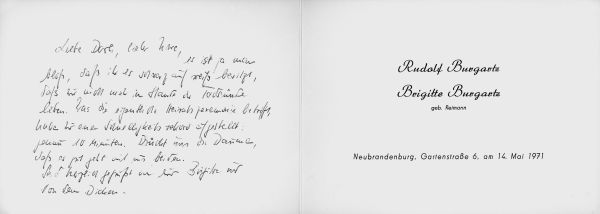 Liebe Dorli, lieber Uwe,
es ist ja nur
bloß, daß ihr es schwarz auf weiß besitzt,
daß wir nicht mehr im Stande der Todsünde
leben. Was die eigentliche betrifft,
haben wir einen Schnelligkeitsrekord aufgestellt:
genau 10 Minuten. Drückt uns die Daumen,
daß es gut geht mit uns beiden.
Seid herzlich gegrüßt von Brigitte und
von dem Dicken.
Rudolf Burgartz
Brigitte Burgartz
geb. Reimann
Neubrandenburg, Gartenstraße 6, am 14. Mai 1971